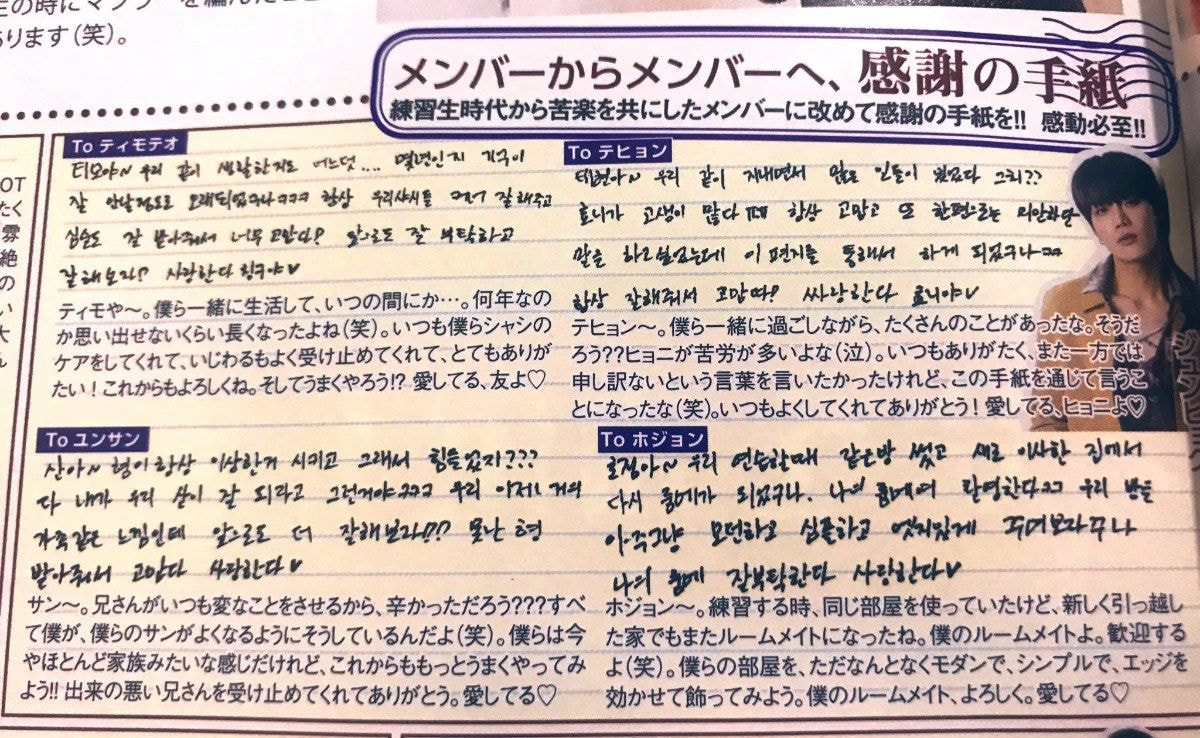 生の時にマフラーを編んだこと
あります（笑）。
メンバーからメンバーへ、感謝の手紙
練習生時代から苦楽を共にしたメンバーに改めて感謝の手紙を!! 感動必至!!
To ティモテオ
티모야~ 우리 같이 생활한지도 어느덧.... 몇년인지 기억이
잘 안날정도로 오래되었구나ㅋㅋㅋ 항상 우리샤시를 케어 잘해주고
심술도 잘 받아줘서 너무 고맙다! 앞으로도 잘 부탁하고
잘해보자!? 사랑한다 친구야♡
ティモや～。僕ら一緒に生活して、いつの間にか…。何年なの
か思い出せないくらい長くなったよね（笑）。いつも僕らシャシの
ケアをしてくれて、いじわるもよく受け止めてくれて、とてもありが
たい！これからもよろしくね。そしてうまくやろう!? 愛してる、友よ♡
To テヒョン
태현아~ 우리 같이 지내면서 많은 일들이 있었다 그치??
효니가 고생이 많다ㅠㅠ 항상 고맙고 또 한편으로는 미안하단
말을 하고싶었는데 이 편지를 통해서 하게 되었구나ㅋㅋ
항상 잘해줘서 고맙다! 싸랑한다 효니야♡
テヒョン～。僕ら一緒に過ごしながら、たくさんのことがあったな。そうだ
ろう??ヒョニが苦労が多いよな（泣）。いつもありがたく、また一方では
申し訳ないという言葉を言いたかったけれど、この手紙を通じて言うこ
とになったな（笑）。いつもよくしてくれてありがとう！愛してる、ヒョニよ♡
To ユンサン
산아~ 형이 항상 이상한거 시키고 그래서 힘들었지???
다 내가 우리 산이 잘 되라고 그런거야ㅋㅋㅋ 우리 이제 거의
가족같은 느낌인데 앞으로도 더 잘해보자!!? 못난 형
받아줘서 고맙다 사랑한다♡
サン～。兄さんがいつも変なことをさせるから、辛かっただろう???すべ
て僕が、僕らのサンがよくなるようにそうしているんだよ（笑）。僕らは今
やほとんど家族みたいな感じだけれど、これからももっとうまくやってみ
よう!! 出来の悪い兄さんを受け止めてくれてありがとう。愛してる♡
To ホジョン
호정아~ 우리 연습할때 같은방 썼고 새로 이사한 집에서
다시 룸메가 되었구나. 나의 룸메여 환영한다ㅋㅋ 우리 방을
아주그냥 모던하고 심플하고 엣지있게 꾸며보자꾸나
나의 룸메 잘부탁한다 사랑한다♡
ホジョン～。練習する時、同じ部屋を使っていたけど、新しく引っ越し
た家でもまたルームメイトになったね。僕のルームメイトよ。歓迎する
よ（笑）。僕らの部屋を、ただなんとなくモダンで、シンプルで、エッジを
効かせて飾ってみよう。僕のルームメイト、よろしく。愛してる♡